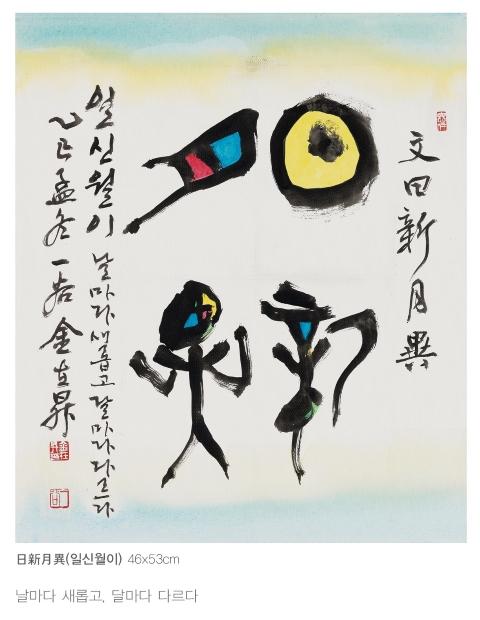 文日新月異
日新
月異
일신월이 날마다 새롭고 달마다 다르다
乙巳孟冬 一 金在昇
日新月異(일신월이) 46x53cm
날마다 새롭고, 달마다 다르다